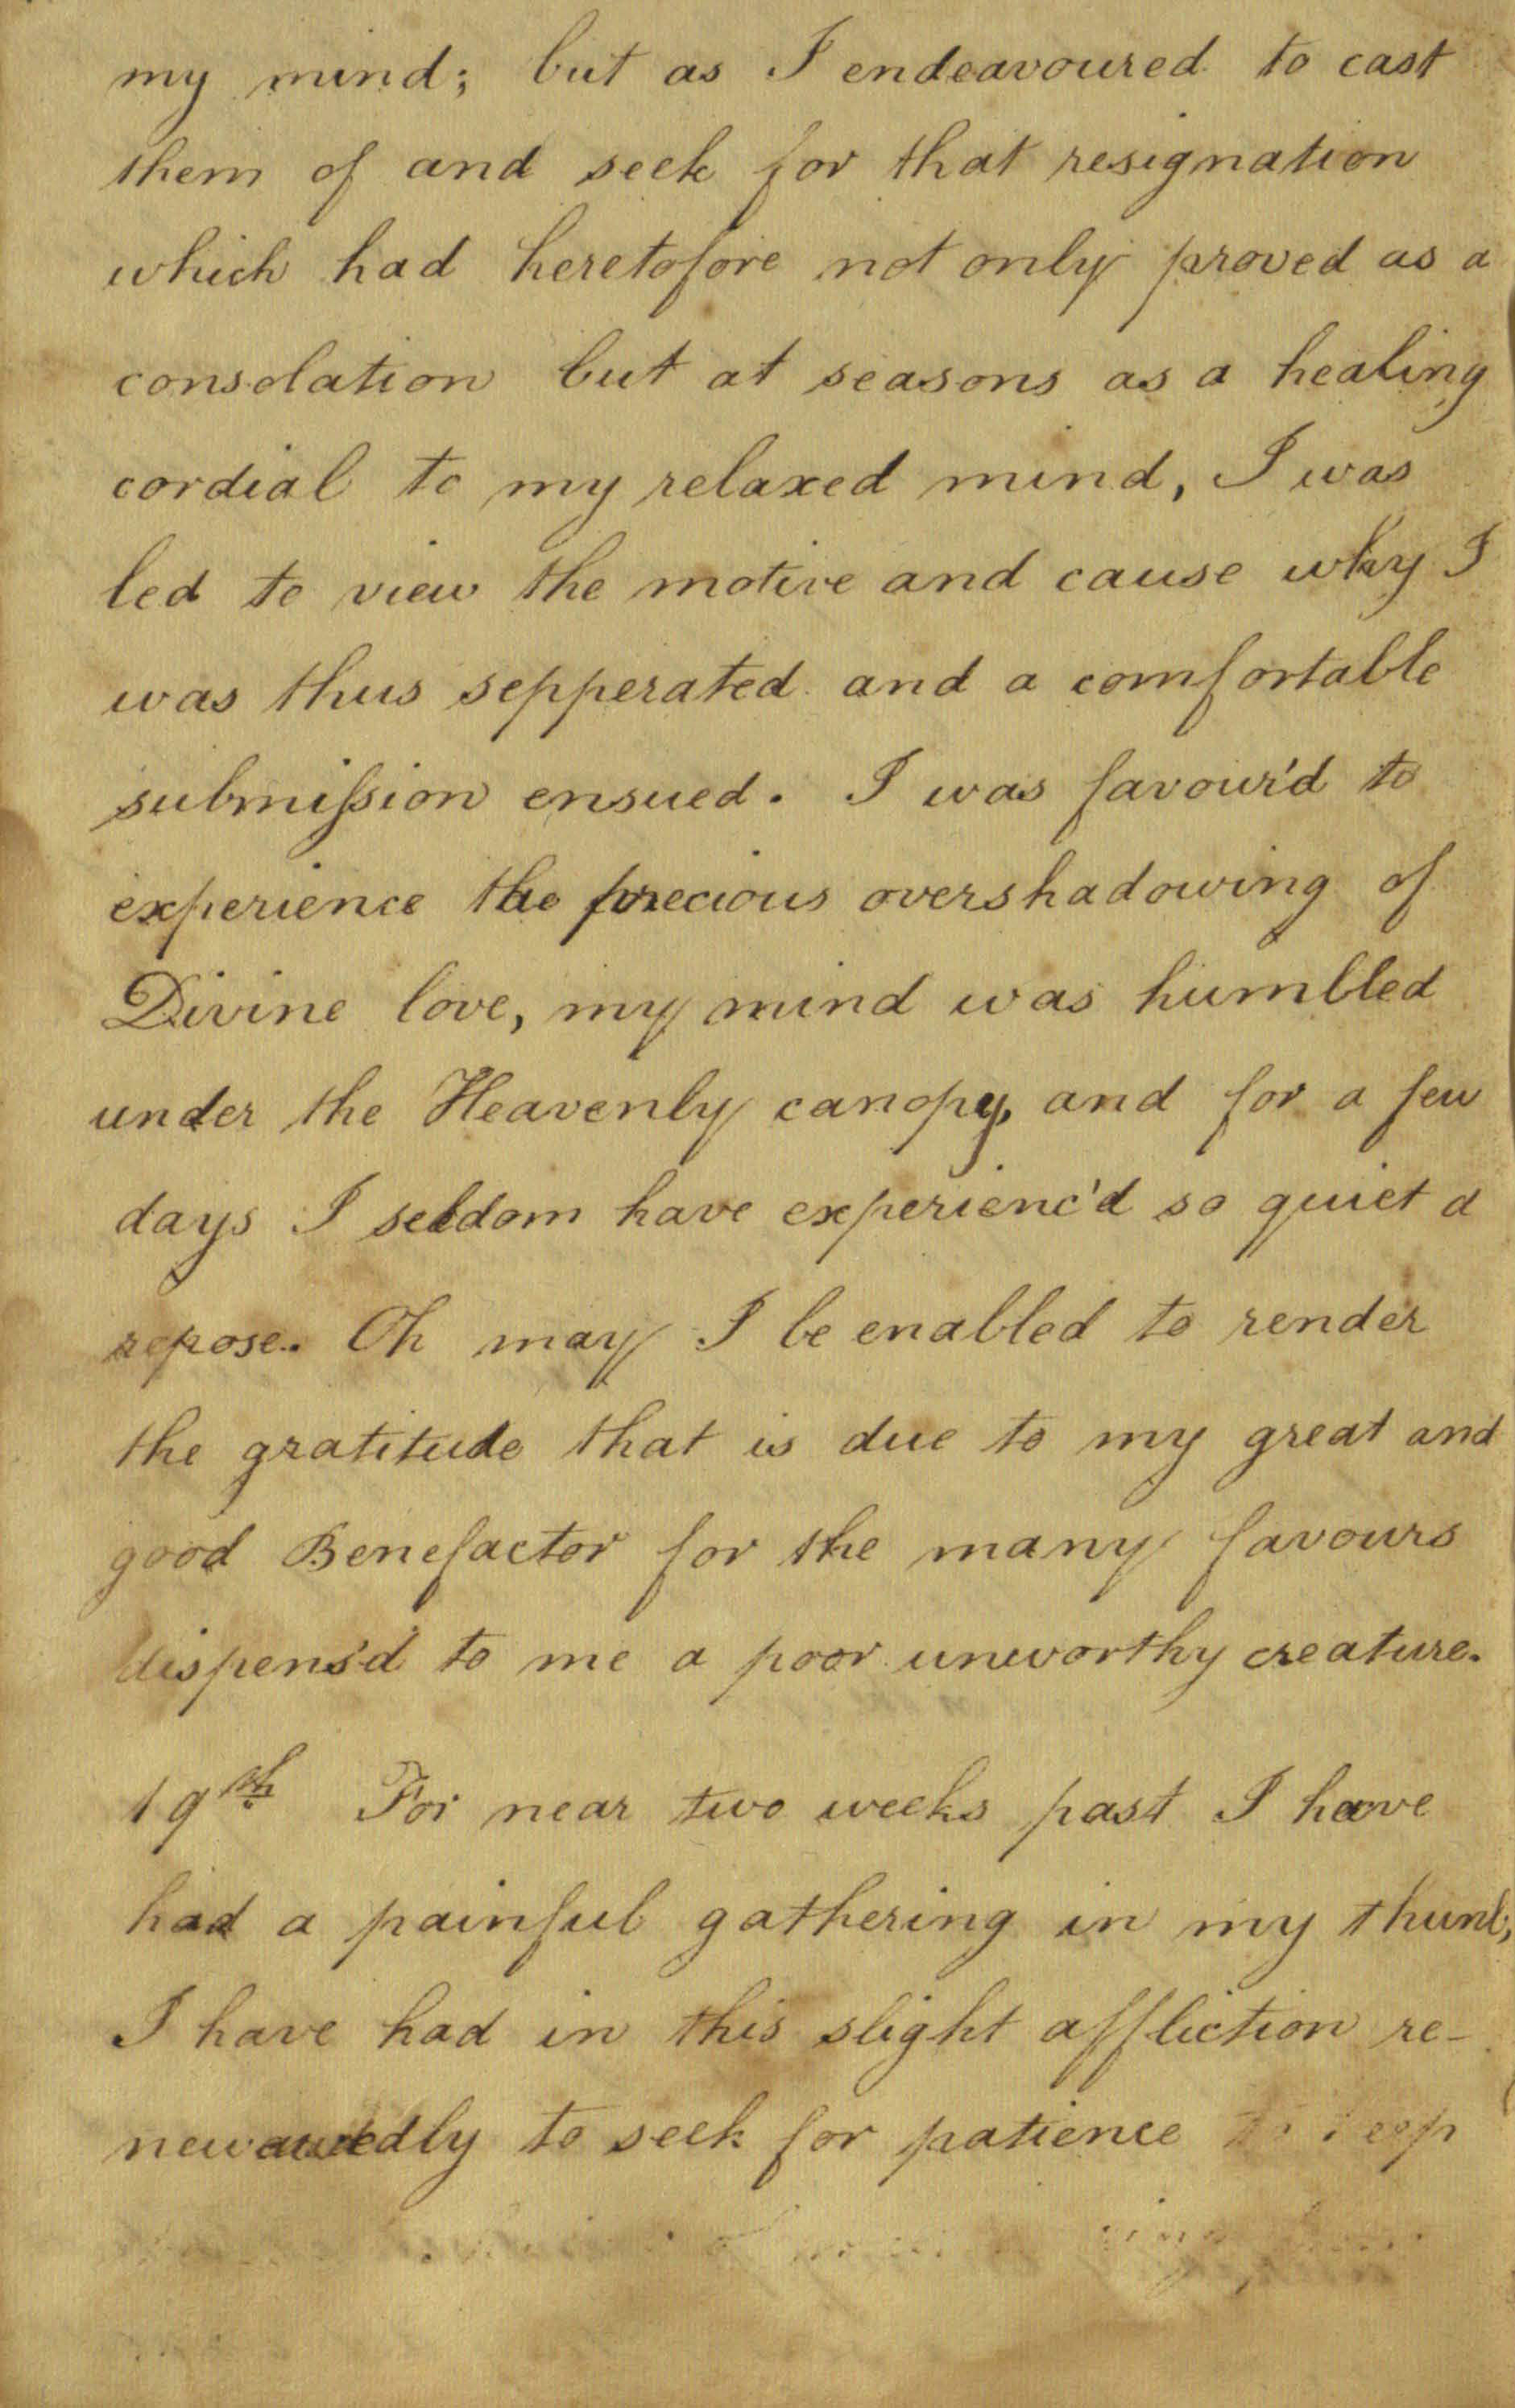 my mind; but as I endeavoured to cast
them of and seek for that resignation
which had heretofore not only proved as a
consolation but at seasons as a healing
cordial to my relaxed mind, I was
led to view the motive and cause why I
was thus sepperated and a comfortable
submiſsion ensued. I was favour'd to
experience the precious overshadowing of
Divine love, my mind was humbled
under the Heavenly canopy, and for a few
days I seldom have experienc'd so quiet a
repose. Oh may I be enabled to render
the gratitude that is due to my great and
good Benefactor for the many favours
dispens'd to me a poor unworthy creature.
19th For near two weeks past I have
had a painful gathering in my thumb,
I have had in this slight affliction re-
newedly to seek for patience to keep